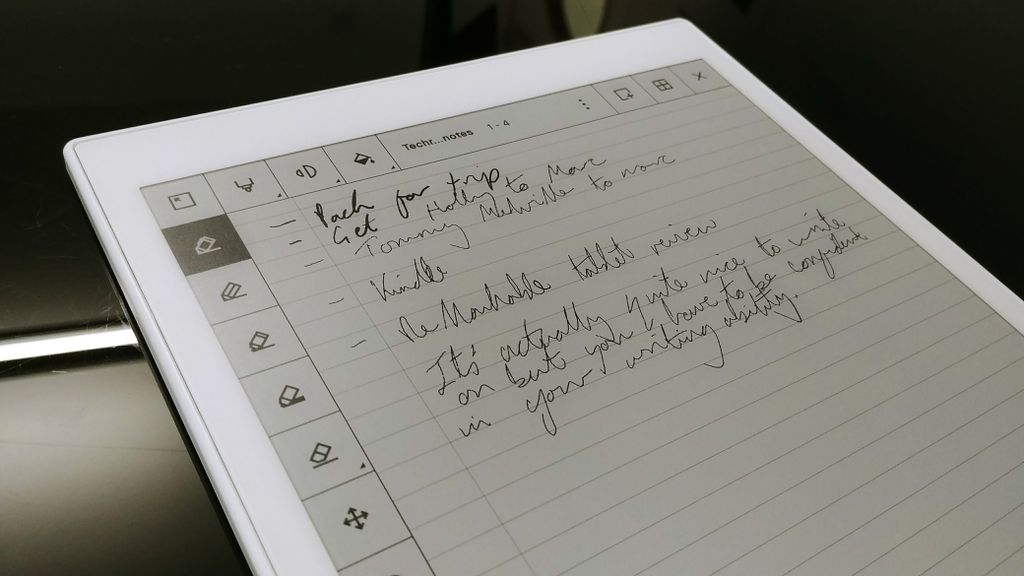 Techr...notes 1-4
- Pack for trip
- Get Hollie to Marc
- Tommy Melville to
- Kindle
- ReMarkable tablet review
It's actually quite nice to write
on but you have to be confident
in your writing ability.